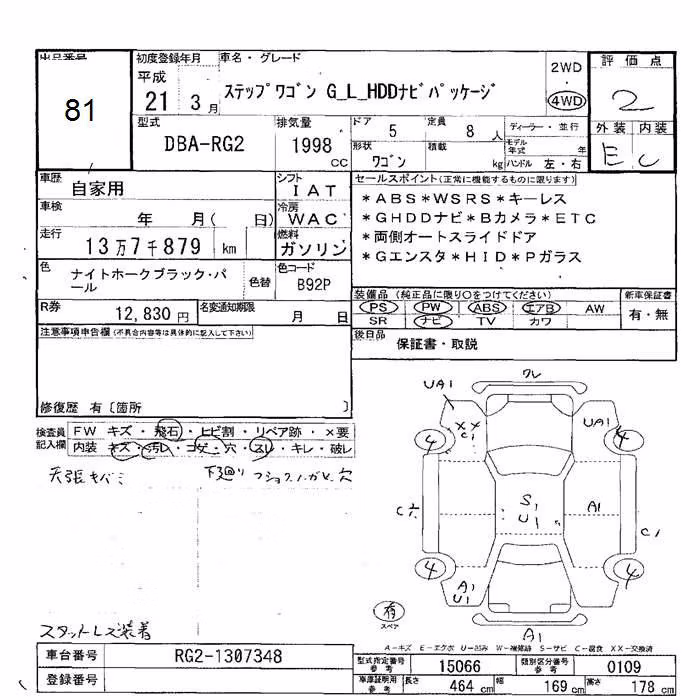 出品番号
81
初度登録年月
平成
21 3 月
車名・グレード
ステップワゴン G_L_HDDナビパッケージ
2WD
4WD
評価点
2
外装 内装
E C
型式
DBA-RG2
排気量
1998
cc
ドア 5
定員 8 人
形状 ワゴン
積載 kg
ディーラー・並行
モデル年式 年
ハンドル 左・右
車歴
自家用
シフト
IAT
車検
年 月( 日)
冷房
WAC
走行
13万7千879 km
燃料
ガソリン
色
ナイトホークブラック・パール
色替
色コード
B92P
R券
12,830 円
名変通知期限
月 日
セールスポイント(正常に機能するものに限ります)
*ABS*WSRS*キーレス
*GHDDナビ*Bカメラ*ETC
*両側オートスライドドア
*Gエンスタ*HID*Pガラス
装備品 (純正品に限り○をつけてください)
PS PW ABS エアB AW
SR ナビ TV カワ
新車保証書
有・無
後日品
保証書・取説
注意事項申告欄(不具合内容等は具体的に記入して下さい)
修復歴 有〔箇所 〕
検査員記入欄
FW キズ・飛石・ヒビ割・リペア跡・×要
内装 キズ・汚レ・コゲ・穴・スレ・キレ・破レ
天張キバミ
下廻り
スタットレス装着
ワレ
UA1
UA1
××
C1
4
4
A1
S1
U1
C1
4
4
A1
U1
A1
有
スペア
A-キズ E-エクボ U-凹み W-補修跡 S-サビ C-腐食 XX-交換済
車台番号
RG2-1307348
登録番号
型式指定番号参考
15066
類別区分番号参考
0109
車庫証明用参考
長さ 464 cm
幅 169 cm
高さ 178 cm